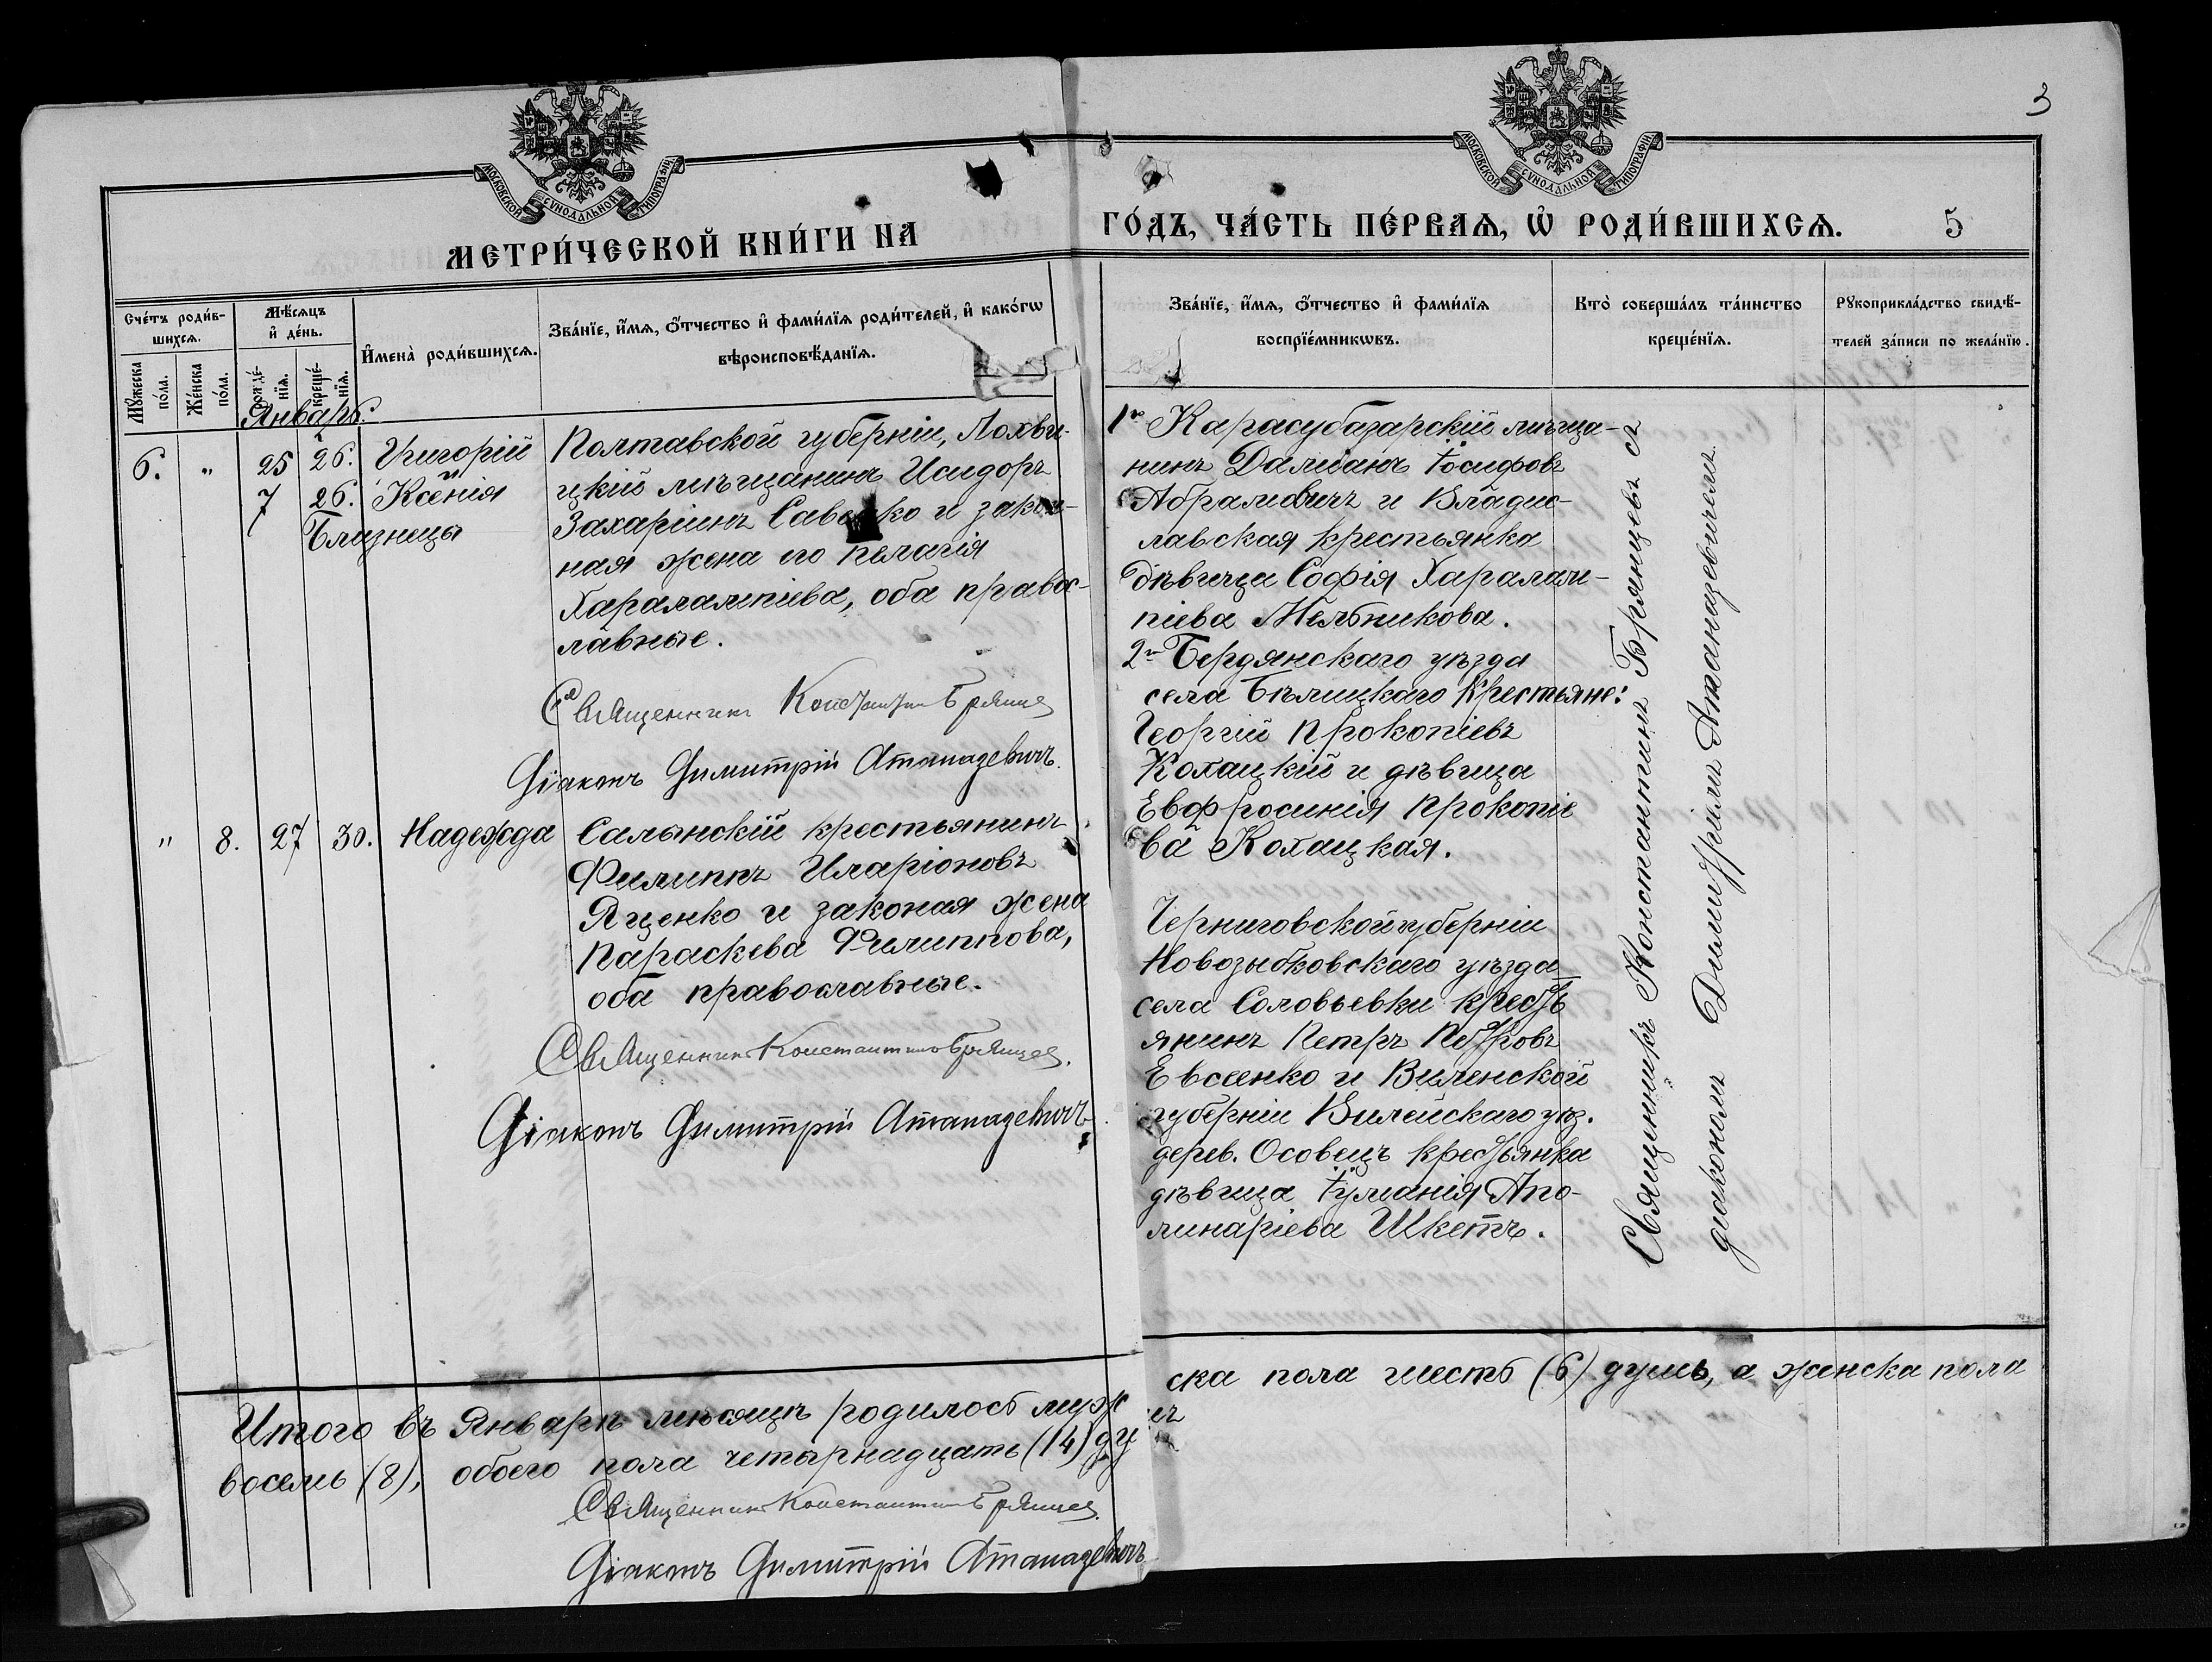 3
МОСКОВСКОЙ СѴНОДАЛЬНОЙ ТИПОГРАФІИ
МОСКОВСКОЙ СѴНОДАЛЬНОЙ ТИПОГРАФІИ
МЕТРИ́ЧЕСКОЙ КНИ́ГИ НА
ГО́ДЪ, ЧА́СТЬ ПЕ́РВАѦ, Ѡ҆ РОДИ́ВШИХСѦ. 5
Сче́тъ роди́в-
шихсѧ.
Мꙋ́жеска по́ла.
Же́нска по́ла.
Мѣ́сѧцъ и҆ де́нь.
рожде́-нїѧ.
креще́-нїѧ.
И҆мена̀ роди́вшихсѧ.
Зва́нїе, и҆́мѧ, ѻ҆́тчество и҆ фами́лїѧ роди́телей, и҆ како́гѡ
вѣроисповѣ́данїѧ.
Зва́нїе, и҆́мѧ, ѻ҆́тчество и҆ фами́лїѧ
воспрїе́мникѡвъ.
Кто̀ соверша́лъ та́инство
креще́нїѧ.
Рꙋкоприкла́дство свидѣ́-
телей за́писи по жела́нїю.
Январь.
6. " 25 26. Григорій
и
7 26. Ксенія
Близнецы
Полтавской губерніи, Лохви-
цкій мѣщанинъ Исидоръ
Захаріинъ Савенко и закон-
ная жена его Пелагія
Харалампіева, оба правос-
лавные.
Священникъ Константинъ Брянцев
Діаконъ Димитрій Атаназевичъ.
1го Карасубазарскій мѣща-
нинъ Даміанъ Іосифовъ
Абрамовичъ и Владис-
лавская крестьянка
дѣвица Софія Харалам-
піева Мельникова.
2й Бердянскаго уѣзда
села Бѣлицкаго крестьяне:
Георгій Прокопіевъ
Кохацкій и дѣвица
Евфросинія Прокопіе
ва Кохацкая.
" 8. 27 30. Надежда
Салынскій крестьянинъ
Филиппъ Иларіоновъ
Яценко и законая жена
Параскева Филиппова,
оба православные.
Священникъ Константинъ Брянцев.
Діаконъ Димитрій Атаназевичъ
Черниговской губерніи
Новозыбковскаго уѣзда
села Соловьевки кресть
янинъ Петръ Петровъ
Евсеенко и Виленской
губерніи Вилейскаго уѣз.
дерев. Осовецъ крестьянка
дѣвица Іуліанія Апо-
линаріева Шкетъ.
Священникъ Константинъ Брянцевъ съ
діакономъ Димитріемъ Атаназевичемъ.
Итого въ Январѣ мѣсяцѣ родилось муж
ска пола шесть (6) душъ, а женска пола
восемь (8), обоего пола четырнадцать (14) ду
Священникъ Константинъ Брянцев.
Діаконъ Димитрій Атаназевичъ